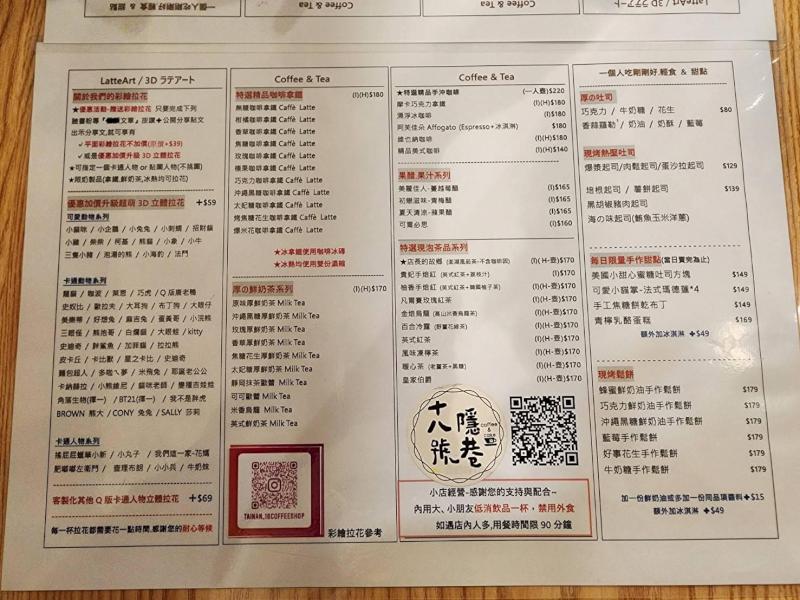 LatteArt / 3D ラテアート
關於我們的彩繪拉花
★優惠活動-贈送彩繪拉花 只要完成下列
出示分享文,就可享有
✓平面彩繪拉花不加價(原價+$39)
✓或是優惠加價升級 3D 立體拉花
★可指定一個卡通人物 or 貼圖人物(不挑圖)
★限奶製品(拿鐵,鮮奶茶,冰熱均可拉花)
優惠加價升級超萌 3D 立體拉花 ✦$59
可愛動物系列
小貓咪 / 小企鵝 / 小兔兔 / 小刺蝟 / 招財貓
小雞 / 柴柴 / 柯基 / 熊貓 / 小象 / 小牛
三隻小豬 / 泡湯的熊 / 小海豹 / 法鬥
卡通動物系列
龍貓 / 咖波 / 萊恩 / 巧虎 / Q 版唐老鴨
史奴比 / 歐拉夫 / 大耳狗 / 布丁狗 / 大眼仔
美樂蒂 / 好想兔 / 麻吉兔 / 蛋黃哥 / 小浣熊
三眼怪 / 熊抱哥 / 白爛貓 / 大眼蛙 / kitty
史迪奇 / 胖鯊魚 / 加菲貓 / 拉拉熊
皮卡丘 / 卡比獸 / 星之卡比 / 史迪奇
麵包超人 / 多啦ㄟ夢 / 米飛兔 / 耶誕老公公
卡納赫拉 / 小熊維尼 / 貓咪老師 / 變種吉娃娃
角落生物(擇一) / BT21(擇一) / 我不是胖虎
BROWN 熊大 / CONY 兔兔 / SALLY 莎莉
卡通人物系列
搖屁屁蠟筆小新 / 小丸子 / 我們這一家-花媽
肥嘟嘟左衛門 / 查理布朗 / 小小兵 / 牛奶妹
客製化其他 Q 版卡通人物立體拉花 ✦$69
每一杯拉花都需要花一點時間,感謝您的耐心等候
Coffee & Tea
特選精品咖啡拿鐵 (I)(H)$180
無糖咖啡拿鐵 Caffè Latte
柑橘咖啡拿鐵 Caffè Latte
香草咖啡拿鐵 Caffè Latte
焦糖咖啡拿鐵 Caffè Latte
玫瑰咖啡拿鐵 Caffè Latte
榛果咖啡拿鐵 Caffè Latte
沖繩黑糖咖啡拿鐵 Caffè Latte
太妃糖咖啡拿鐵 Caffè Latte
烤焦糖花生咖啡拿鐵 Caffè Latte
爆米花咖啡拿鐵 Caffè Latte
★冰拿鐵使用咖啡冰磚
★冰熱均使用雙份濃縮
厚の鮮奶茶系列 (I)(H)$170
原味厚鮮奶茶 Milk Tea
沖繩黑糖厚鮮奶茶 Milk Tea
玫瑰厚鮮奶茶 Milk Tea
香草厚鮮奶茶 Milk Tea
焦糖花生厚鮮奶茶 Milk Tea
太妃糖厚鮮奶茶 Milk Tea
靜岡抹茶歐蕾 Milk Tea
可可歐蕾 Milk Tea
米香烏龍 Milk Tea
英式鮮奶茶 Milk Tea
TAINAN_18COFFEESHOP
彩繪拉花參考
Coffee & Tea
★特選精品手沖咖啡 (一人壺)$220
摩卡巧克力拿鐵 (I)(H)$180
漂浮冰咖啡 (I)$180
阿芙佳朵 Affogato (Espresso+冰淇淋) $180
維也納咖啡 (H)$180
精品美式咖啡 (I)(H)$140
果醋.果汁系列
美麗佳人-蔓越莓醋 (I)$165
初戀滋味-青梅醋 (I)$165
夏天清涼-蘋果醋 (I)$165
可爾必思 (I)$160
特選現泡茶品系列
★店長的故鄉 (澎湖風茹茶-不含咖啡因) (I)(H-壺)$170
貴妃手焙紅 (英式紅茶+荔枝汁) (I)(H-壺)$170
柚香手焙紅 (英式紅茶+韓國柚子茶) (I)(H-壺)$170
凡爾賽玫瑰紅茶 (I)(H-壺)$170
金焙烏龍 (高山米香烏龍茶) (I)(H-壺)$170
百合冷露 (野薑花綠茶) (I)(H-壺)$170
英式紅茶 (I)(H-壺)$170
風味凍檸茶 (I)(H-壺)$170
暖心茶 (老薑茶+黑糖) (I)(H-壺)$170
皇家伯爵 (I)(H-壺)$170
十八號
隱巷
coffee & cake
小店經營-感謝您的支持與配合~
內用大、小朋友低消飲品一杯，禁用外食
如遇店內人多,用餐時間限 90 分鐘
一個人吃剛剛好.輕食 & 甜點
厚の吐司
巧克力 / 牛奶糖 / 花生 $80
香蒜羅勒 / 奶油 / 奶酥 / 藍莓
現烤熱壓吐司
爆漿起司/肉鬆起司/蛋沙拉起司 $129
培根起司 / 薯餅起司 $139
黑胡椒豬肉起司
海の味起司(鮪魚玉米洋蔥)
每日限量手作甜點(當日賣完為止)
美國小甜心蜜糖吐司方塊 $149
可愛小貓掌-法式瑪德蓮*4 $149
手工焦糖餅乾布丁 $149
青檸乳酪蛋糕 $169
額外加冰淇淋 ✦$49
現烤鬆餅
蜂蜜鮮奶油手作鬆餅 $179
巧克力鮮奶油手作鬆餅 $179
沖繩黑糖鮮奶油手作鬆餅 $179
藍莓手作鬆餅 $179
好事花生手作鬆餅 $179
牛奶糖手作鬆餅 $179
加一份鮮奶油或多加一份同品項醬料✦$15
額外加冰淇淋 ✦$49